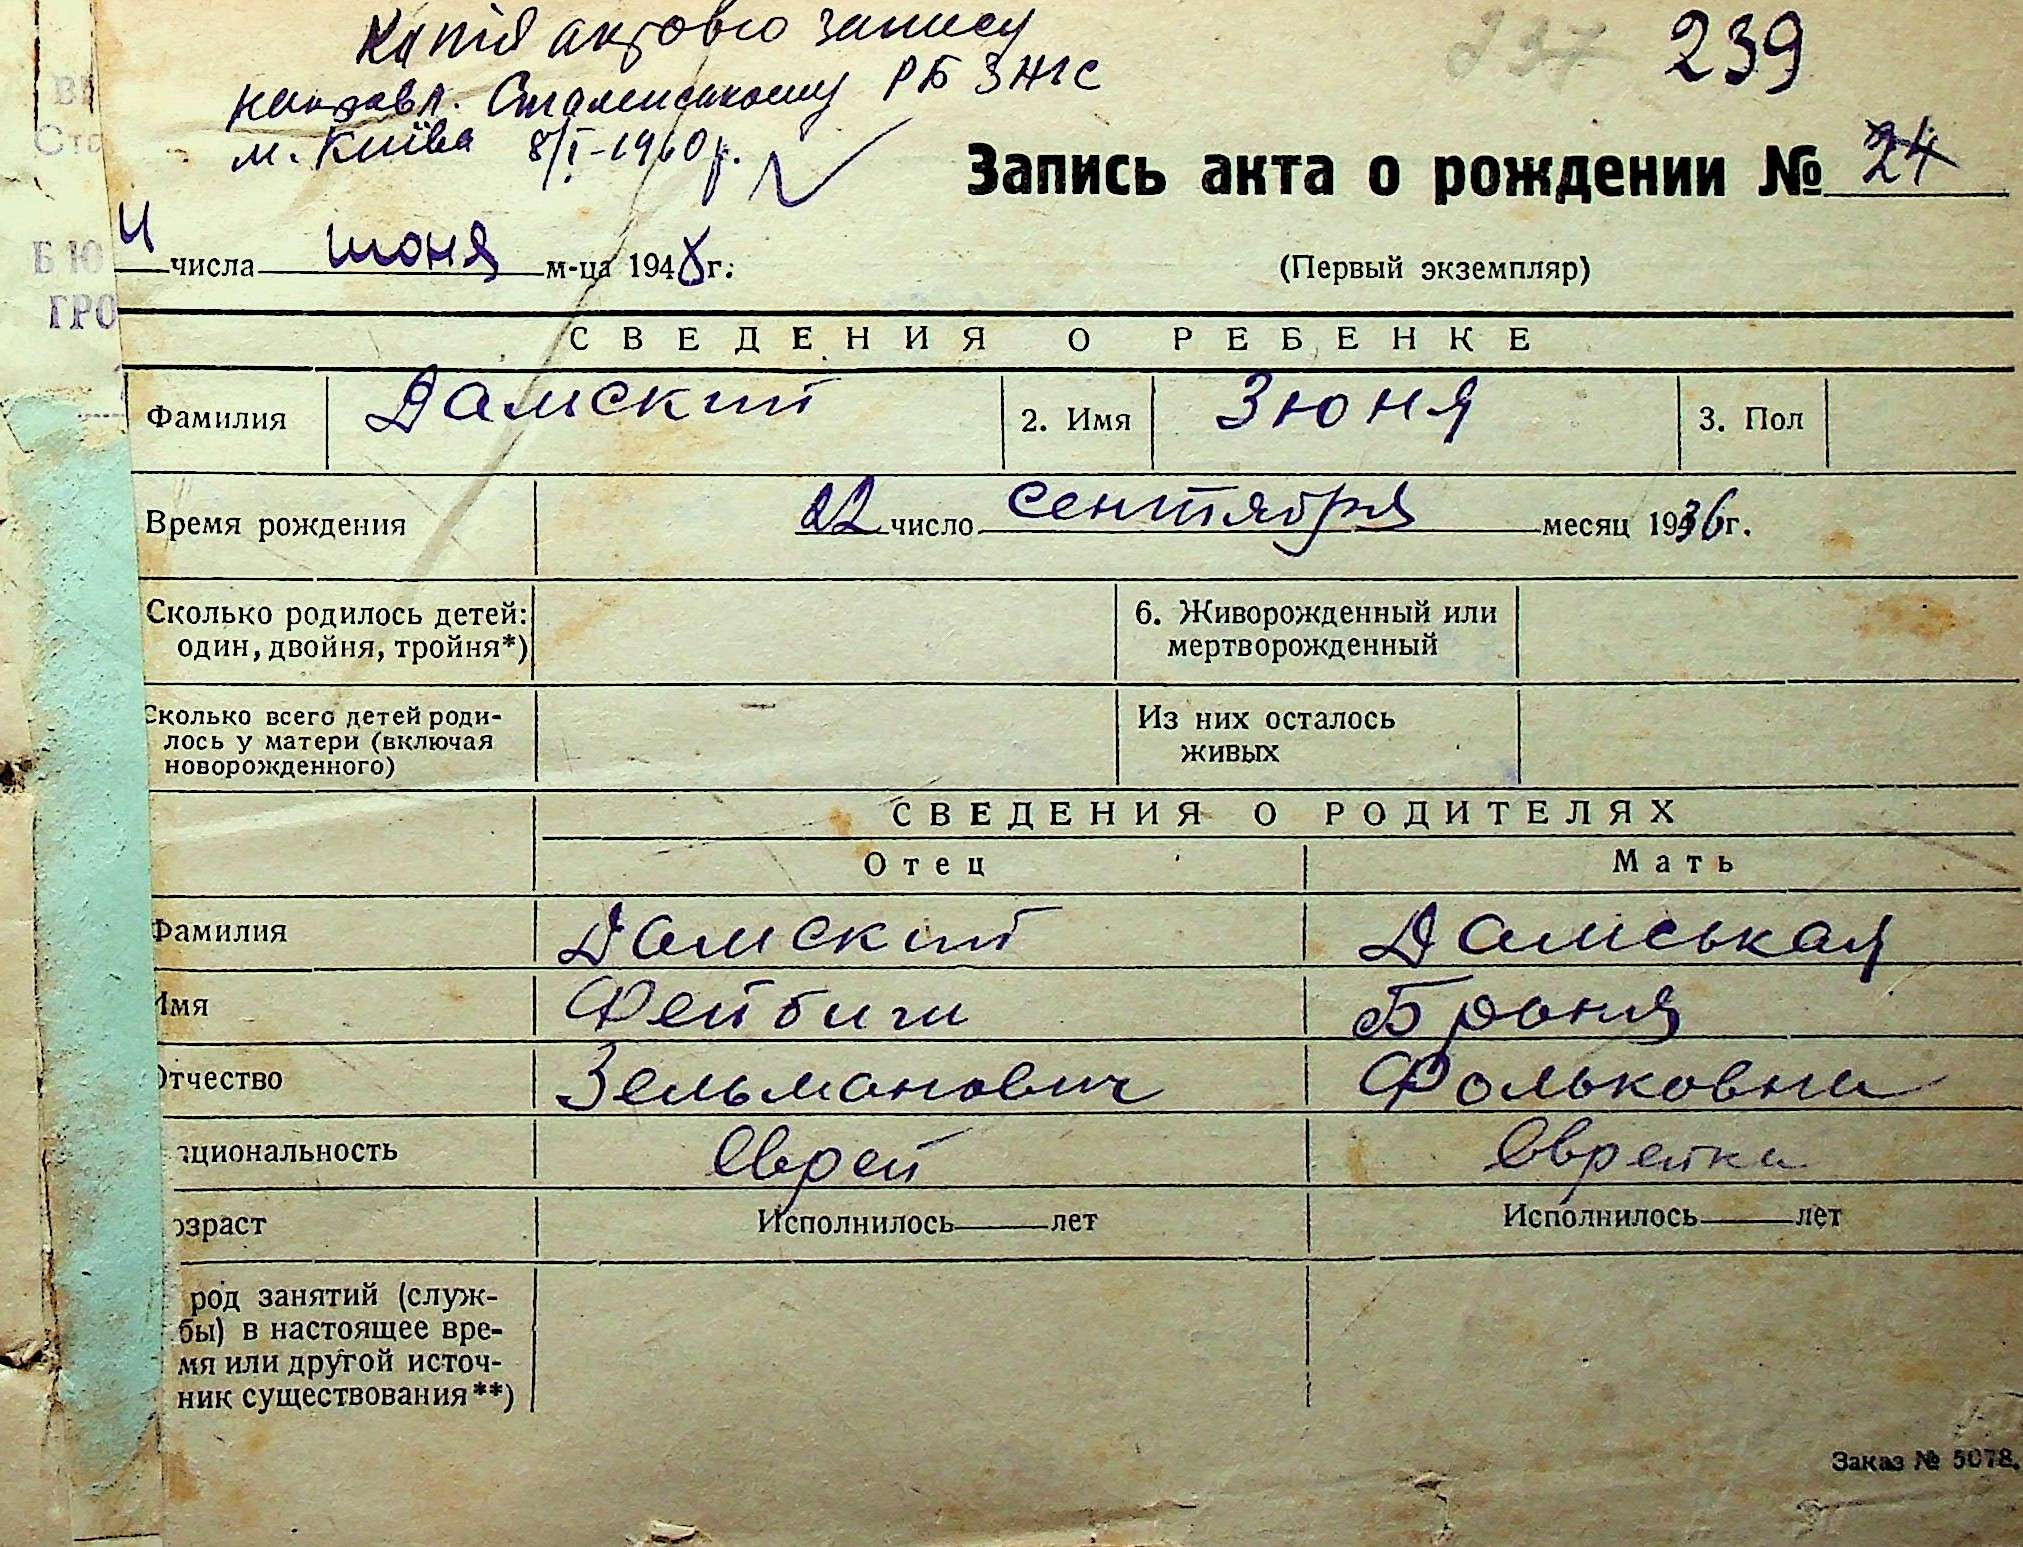 Копія актовго запису
направл. Сталинському РБ ЗАГС
м. Київа 8/I-1960 р.
237 239
Запись акта о рождении № 24
4 числа июня м-ца 1948 г.
(Первый экземпляр)
БЮ
ГРО
СВЕДЕНИЯ О РЕБЕНКЕ
Фамилия Дамский 2. Имя Зюня 3. Пол
Время рождения 22 число сентября месяц 1936 г.
Сколько родилось детей: один, двойня, тройня*)
6. Живорожденный или мертворожденный
Сколько всего детей роди-
лось у матери (включая
новорожденного)
Из них осталось
живых
СВЕДЕНИЯ О РОДИТЕЛЯХ
Отец Мать
Фамилия Дамский Дамськая
Имя Фейбиш Броня
Отчество Зельманович Фольковна
ациональность Еврей Еврейка
озраст Исполнилось лет Исполнилось лет
род занятий (служ-
бы) в настоящее вре-
мя или другой источ-
ник существования**)
Заказ № 5078.